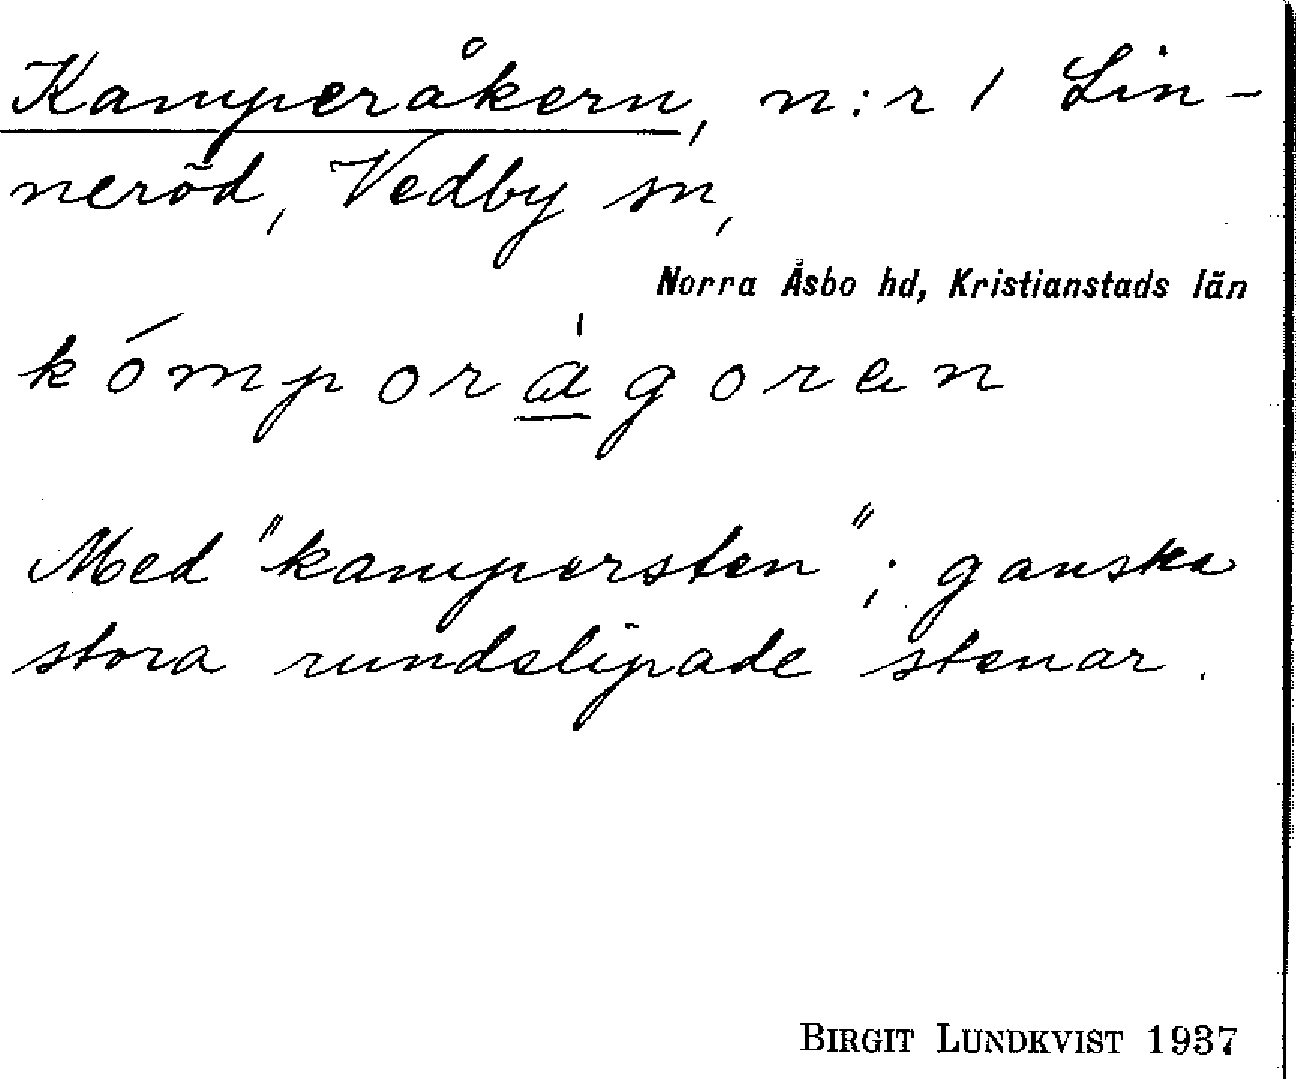 Kamperåkern, n:r 1 Lin-
neröd, Vedby sn,
Norra Åsbo hd, Kristianstads län
kómporàgoran
Med "kampersten"; ganska
stora rundslipade stenar.
BIRGIT LUNDKVIST 1937